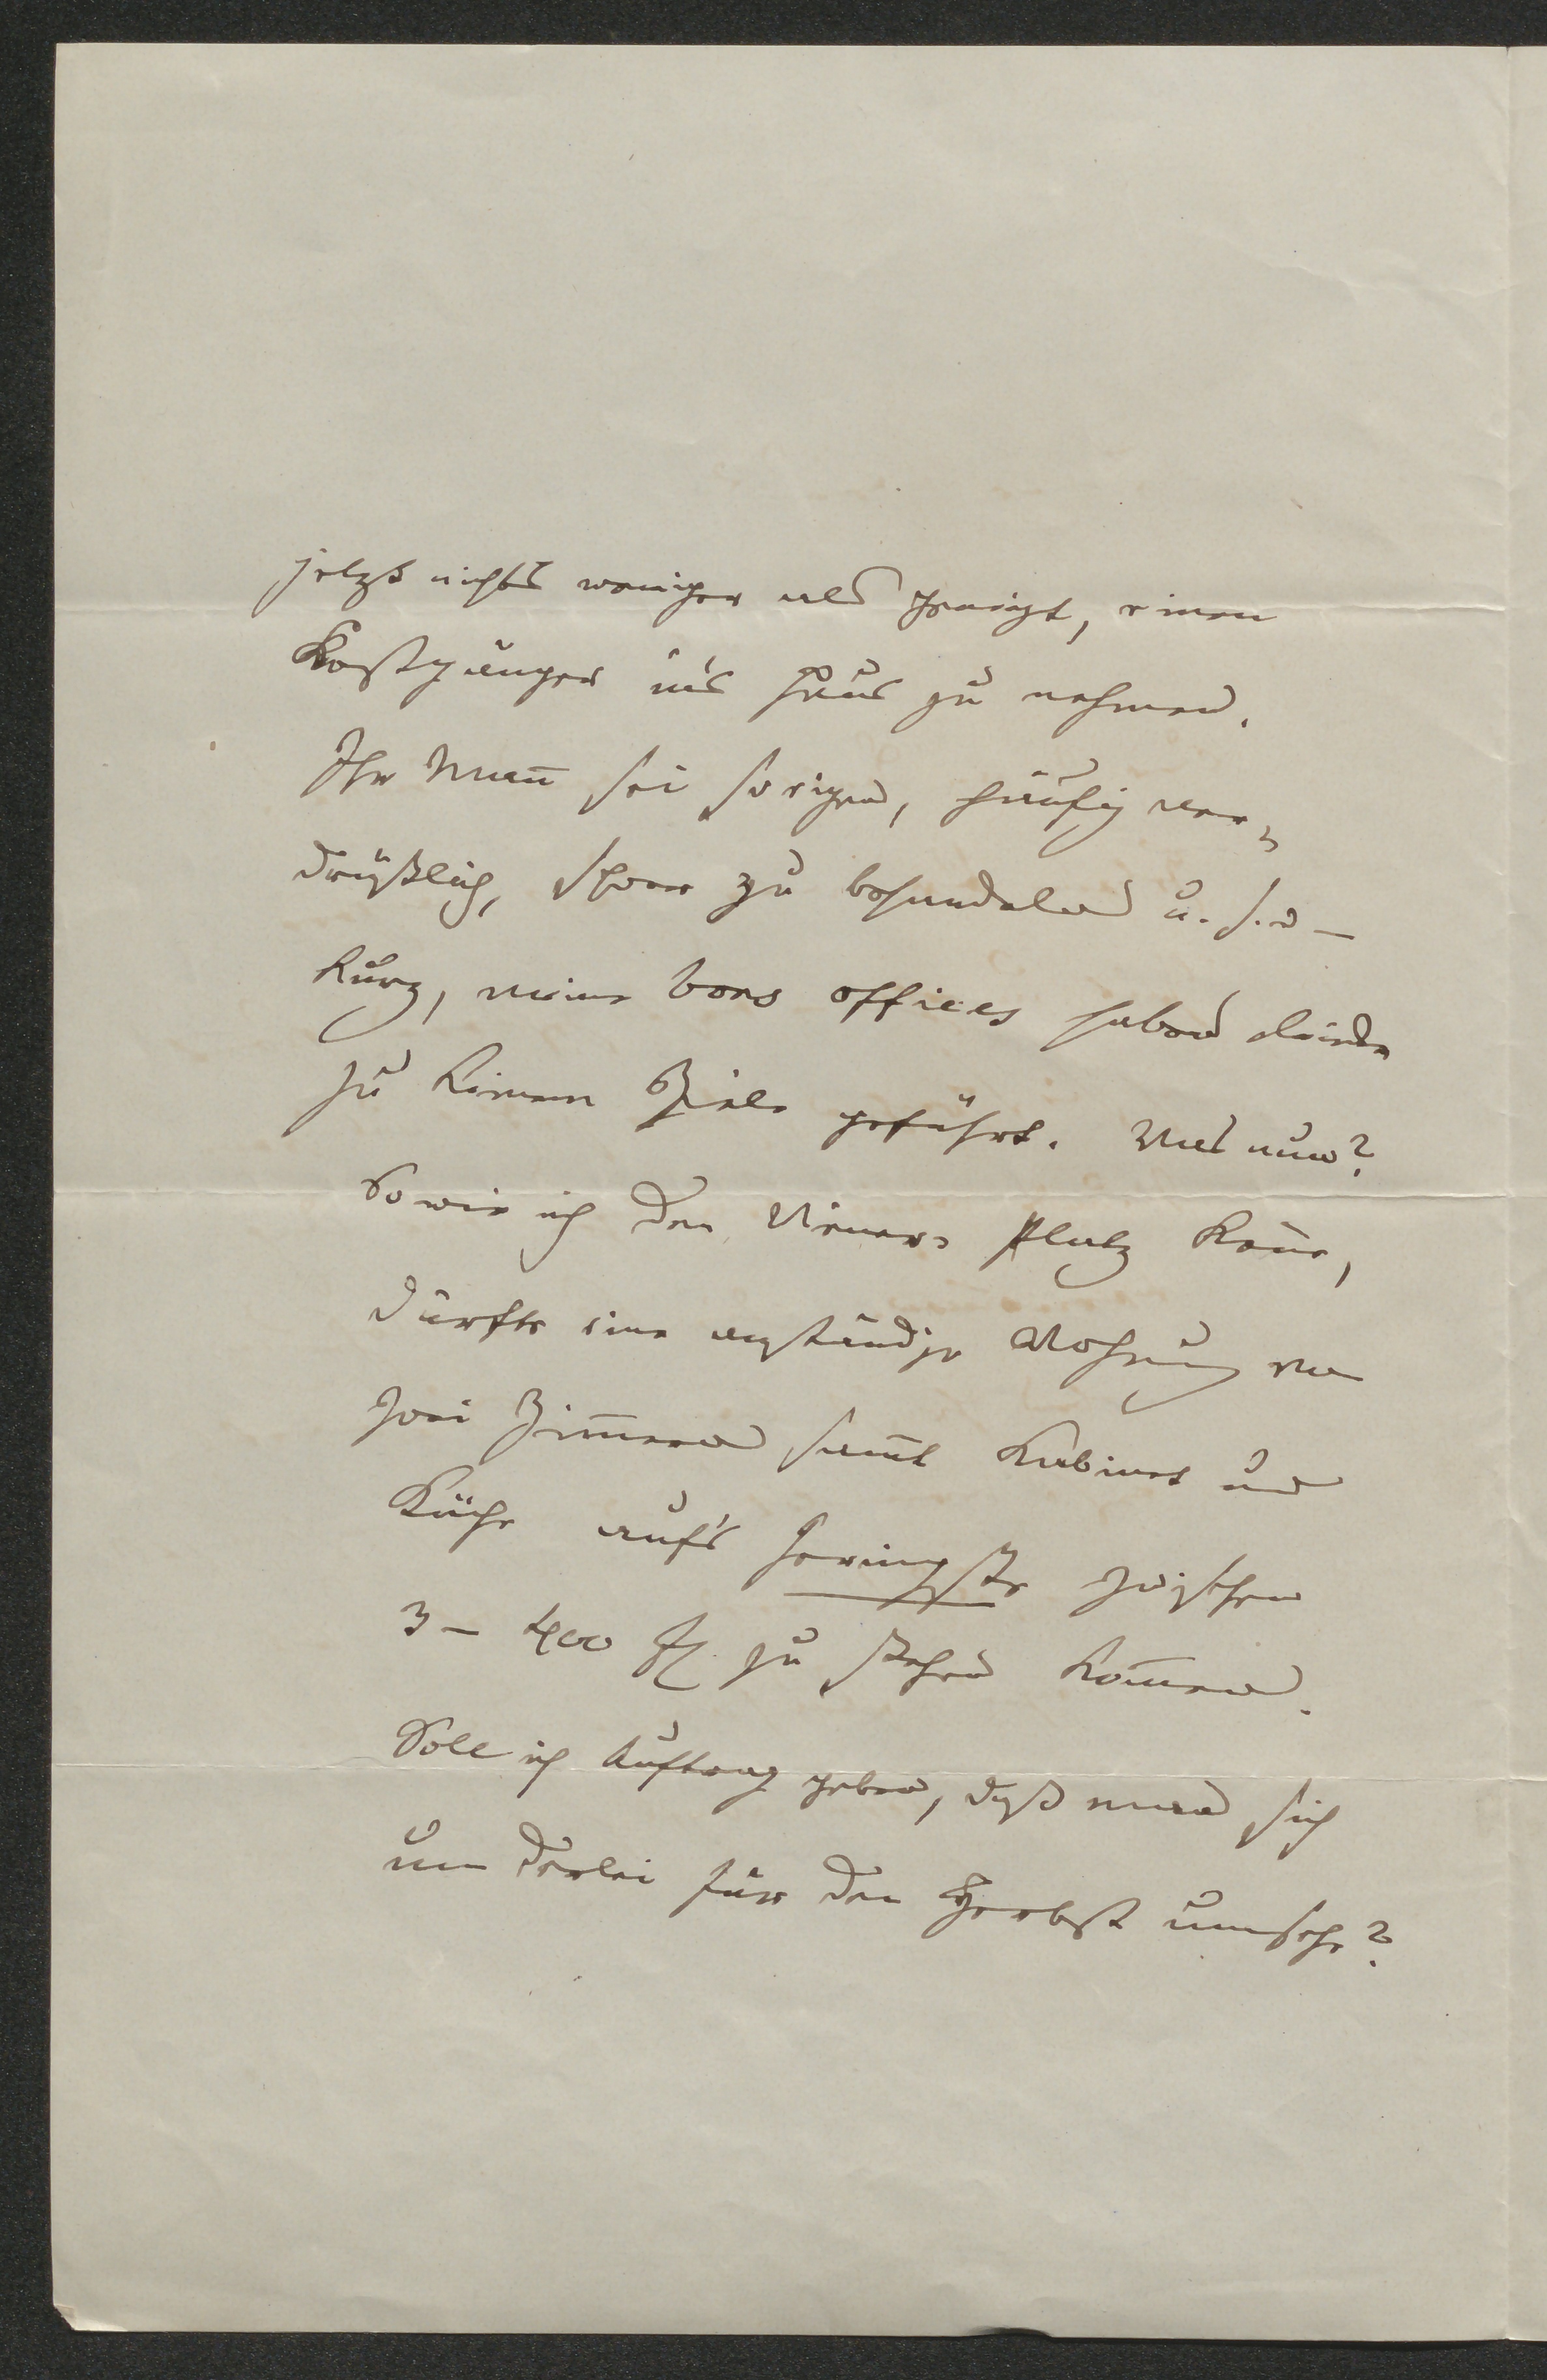 jetzt nichts weniger als geneigt, einen
Kostgänger in's Haus zu nehmen.
Ihr Mann sei so eigen, häufig ver-
drüßlich, schwer zu behandeln u. s. w –
kurz, meine bons offices haben leider
zu keinem Ziele geführt. Was nun?
So wie ich den Wiener Platz kenne,
dürfte eine anständige Wohnung von
zwei Zimmern sammt Kabinet und
Küche auf's Geringste zwischen
3 – 400 fl. zu stehen kommen.
Soll ich Auftrag geben, daß man sich
um derlei für den Herbst umsehe?